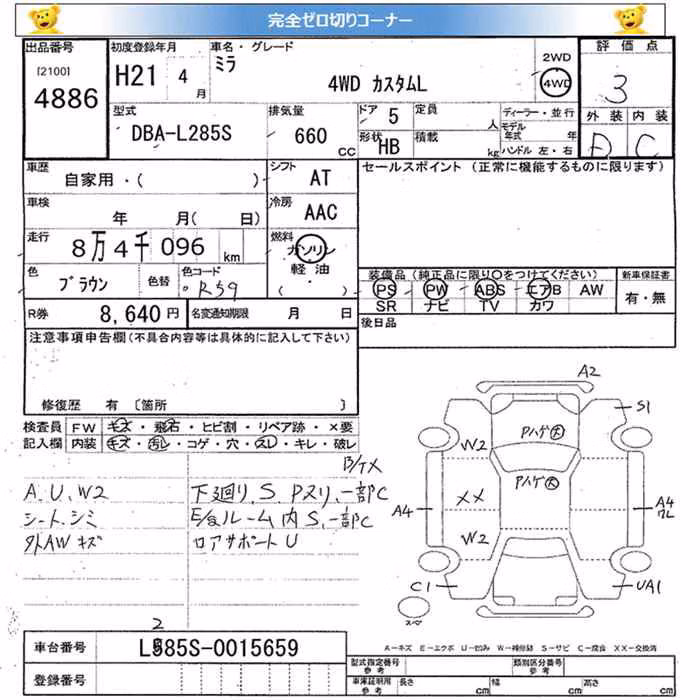 完全ゼロ切りコーナー
出品番号
[2100]
4886
初度登録年月
H21 4月
車名・グレード
ミラ
4WD カスタムL
2WD
4WD
評価点
3
外装 内装
D C
型式
DBA-L285S
排気量
660 CC
ドア 5
定員 人
形状 HB
積載 kg
ディーラー・並行
モデル年式 年
ハンドル 左・右
車歴
自家用・( )
シフト AT
セールスポイント (正常に機能するものに限ります)
車検
年 月( 日)
冷房 AAC
走行
8万4千096 km
燃料
ガソリン
軽油
( ・ )
色
ブラウン
色替
色コード
R59
装備品(純正品に限り○をつけてください)
新車保証書
PS PW ABS エアB AW
SR ナビ TV カワ
有・無
R券 8,640円
名変通知期限 月 日
後日品
注意事項申告欄(不具合内容等は具体的に記入して下さい)
修復歴 有 〔箇所 〕
検査員 FW キズ・飛石・ヒビ割・リペア跡・×要
記入欄 内装 キズ・汚レ・コゲ・穴・スレ・キレ・破レ
A.U.W2
シート.シミ
外AWキズ
下廻り.S.Pヌリ.一部C
ルーム内S.一部C
ロアサポートU
A2
S1
W2
Pハゲ大
XX
Pハゲ大
A4
W2
A4
ワレ
C1
UA1
スペア
2
車台番号 L585S-0015659
登録番号
A-キズ E-エクボ U-凹み W-補修跡 S-サビ C-腐食 XX-交換済
型式指定番号 参考
類別区分番号 参考
車庫証明用 参考
長さ cm 幅 cm 高さ cm